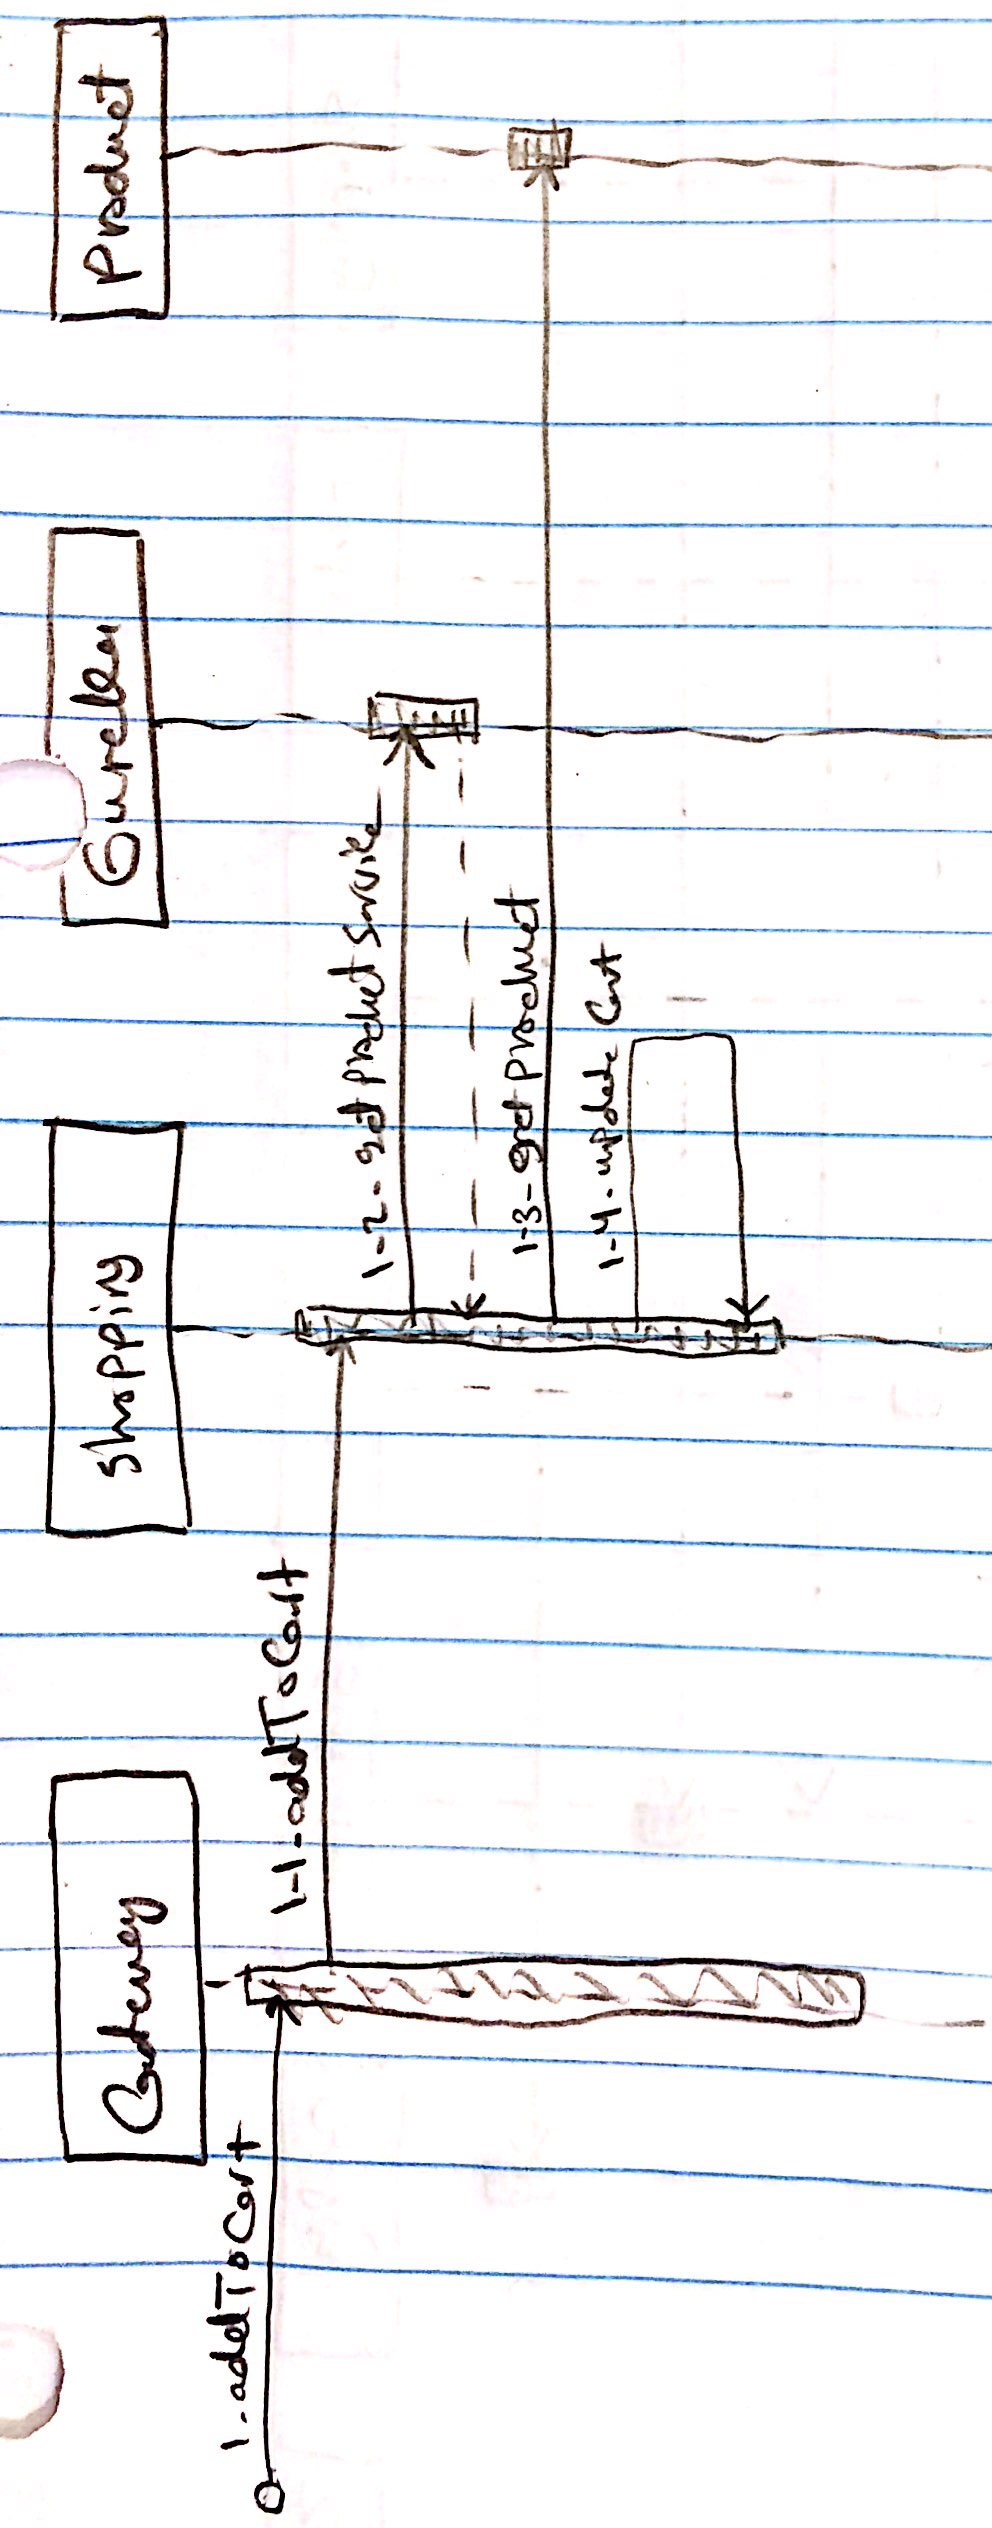 Gateway
shopping
Eureka
Product
1.addToCart
1-1-addToCart
1-2-getProductService
1-3-getProduct
1-4-update Cart